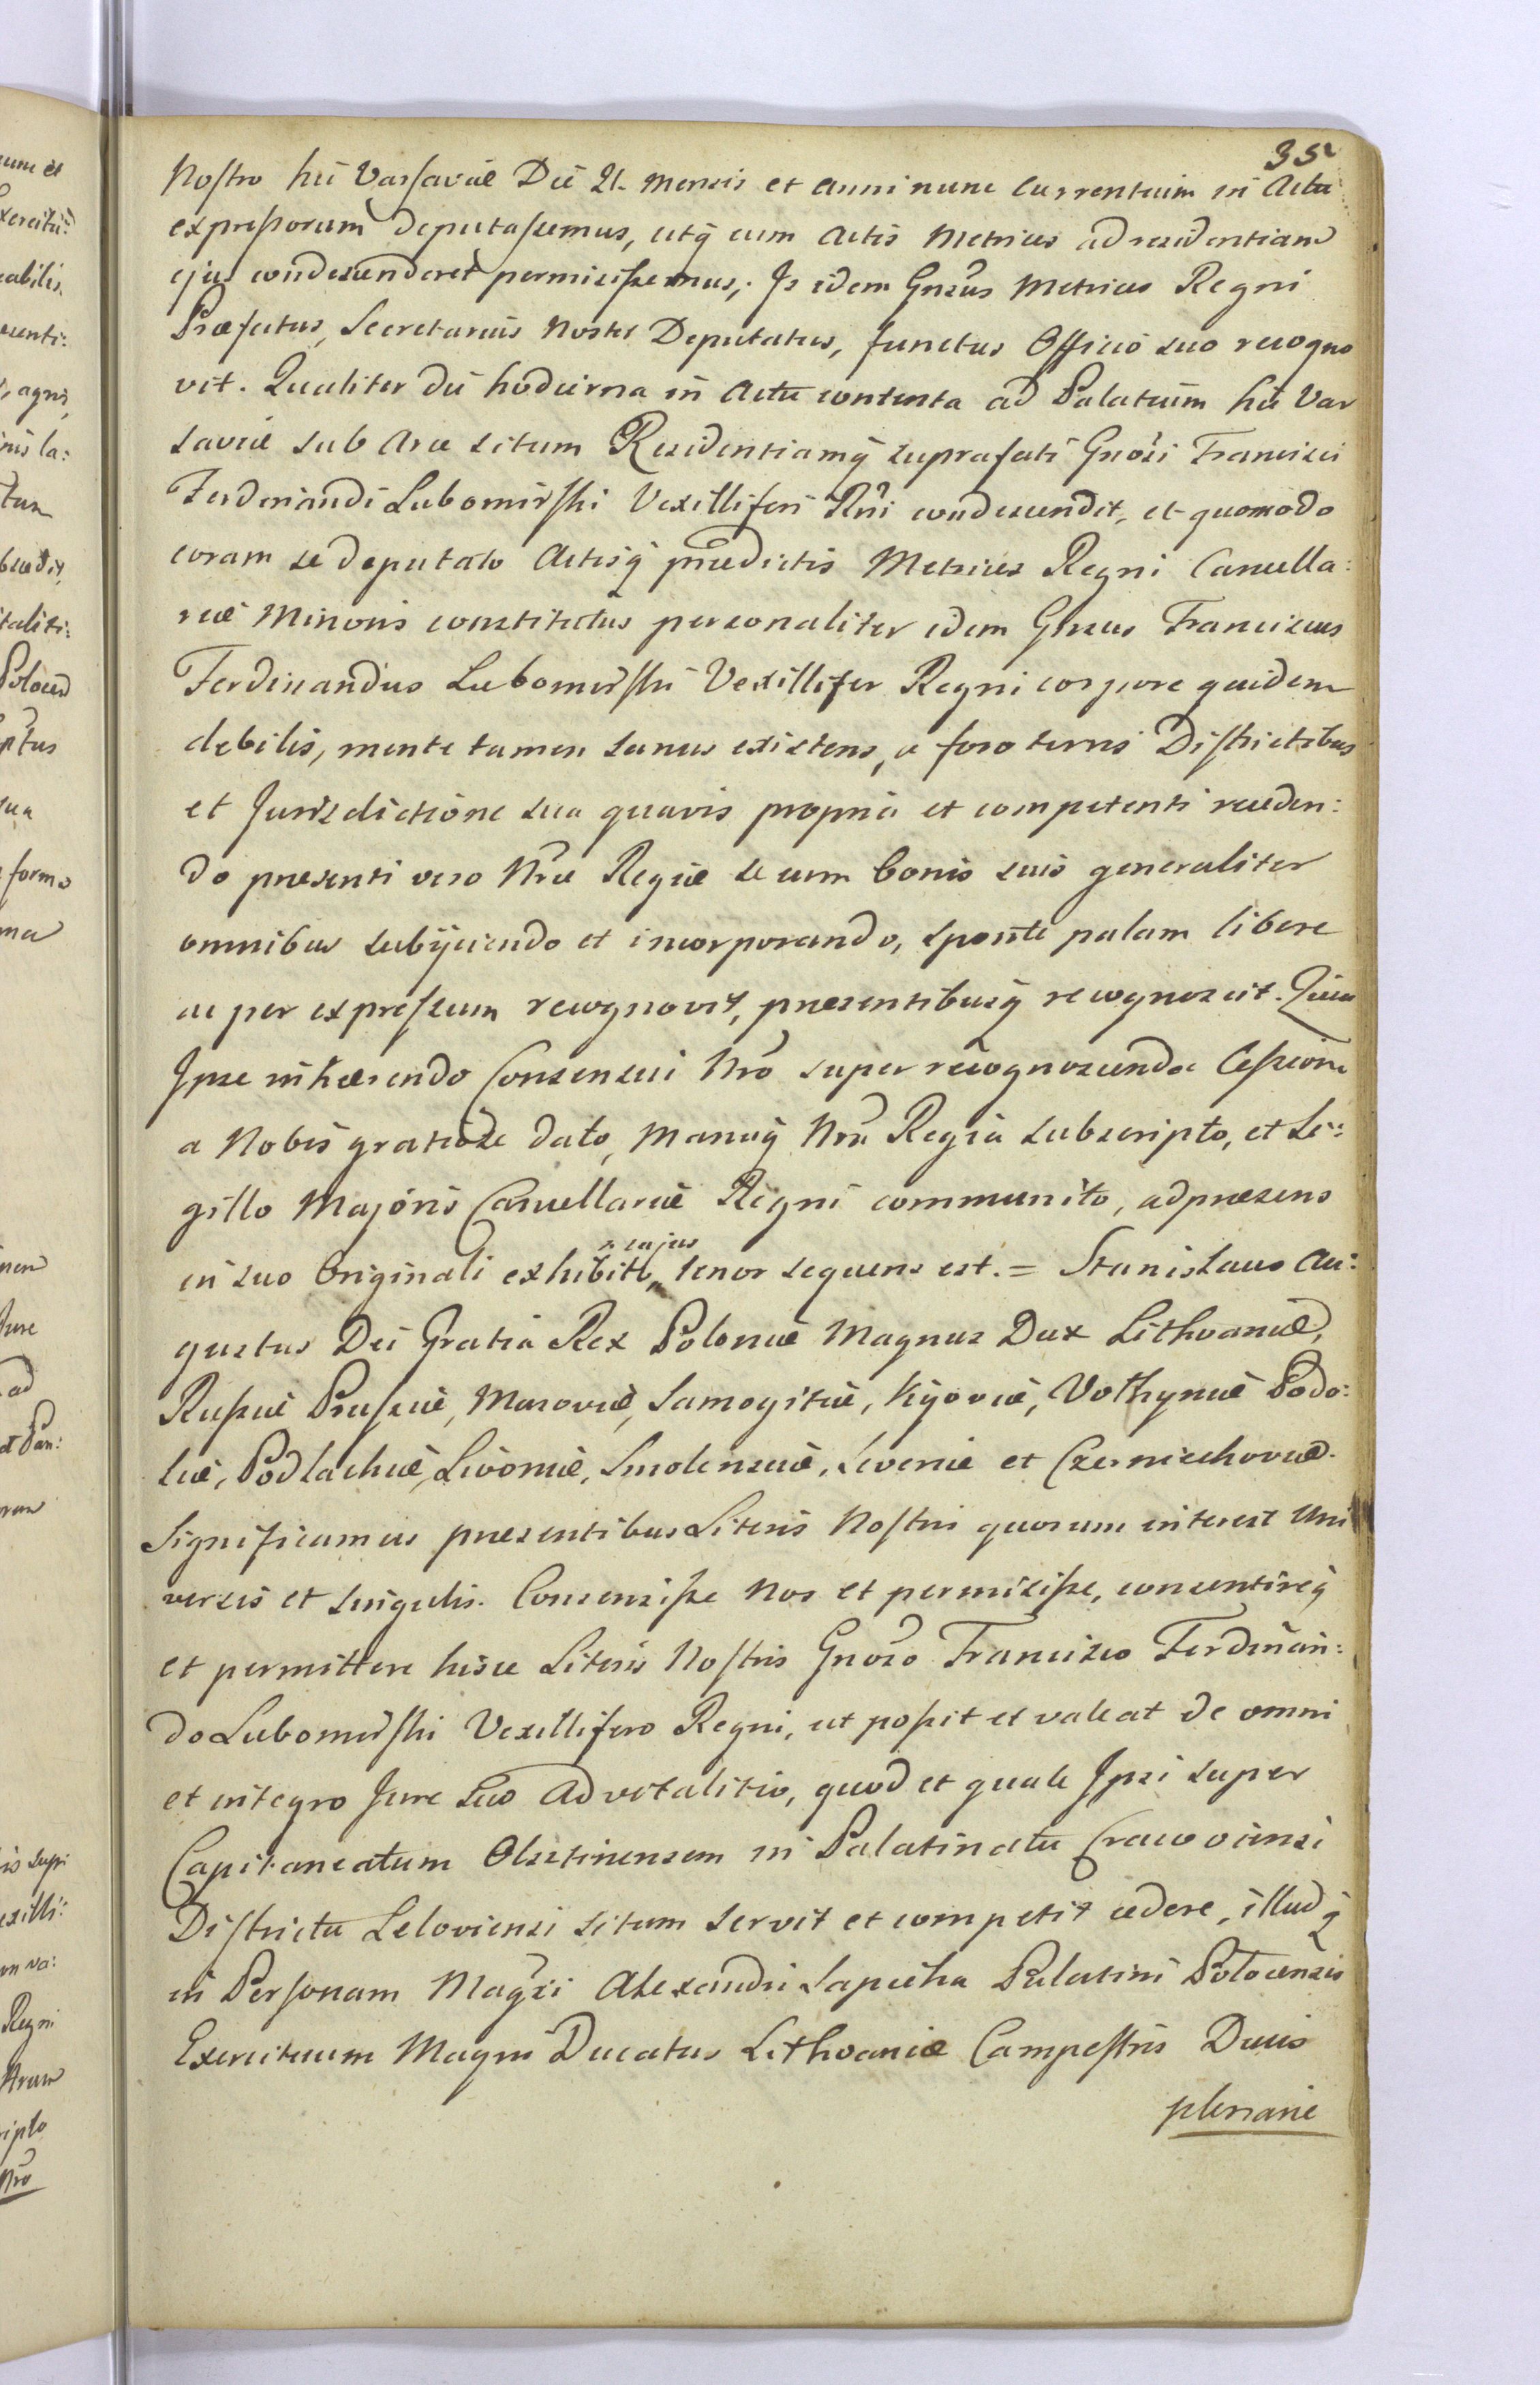 35
Nostro hic Varsaviæ Die 21. mensis et anni nunc currentium in Actu
expressorum deputassemus, utq̃ cum Actis Metrices ad residentiam
ejus condescenderet permisissemus, Is idem Gnsus Metrices Regni
Præfectus, Secretarius Noster Deputatus, functus Officio suo recogno
vit. Qualiter die hodierna in Actu contenta ad Palatium hic Var
saviæ sub Arce situm Residentiamq̃ suprafati Gnosi Francisci
Ferdinandi Lubomirski Vexilliferi Rni condescendit, et quomodo
coram se deputato Actisq̃ prædictis Metrices Regni Cancella:
riæ Minoris constitutus personaliter idem Gnsus Franciscus
Ferdinandus Lubomirski Vexillifer Regni corpore quidem
debilis, mente tamen sanus existens, a foro terris Districtibus
et Jurisdictione sua quavis propria et competenti receden:
do præsenti vero Nræ Regiæ se cum bonis suis generaliter
omnibus subijciendo et incorporando, sponte palam libere
ac per expressum recognovit, præsentibusq̃ recognoscit. Quia
Ipse inhærendo Consensui Nro super recognoscenda Cessione
a Nobis gratiose dato, manuq̃ Nra Regia subscripto, et Si:
gillo Majoris Cancellariæ Regni communito, ad præsens
in suo Originali exhibito, cujus tenor sequens est. = Stanislaus Au:
gustus Dei Gratia Rex Poloniæ Magnus Dux Lithvaniæ,
Russiæ Prussiæ, Masoviæ, Samogitiæ, Kijoviæ, Volhyniæ Podo:
liæ, Podlachiæ, Livoniæ, Smolensciæ, Severiæ et Czerniechoviæ.
Significamus præsentibus Literis Nostris quorum interest Uni
versis et singulis. Consensisse Nos et permisisse, consentireq̃
et permittere hisce Literis Nostris Gnoso Francisco Ferdinan:
do Lubomirski Vexillifero Regni, ut possit et valeat de omni
et integro Jure suo Advitalitio, quod et quale Ipsi super
Capitaneatum Olsztinensem in Palatinatu Cracoviensi
Districtu Leloviensi situm servit et competit cedere, illudq̃
in Personam Magci Alexandri Sapieha Palatini Polocensis
Exercituum Magni Ducatus Lithvaniæ Campestris Ducis
plenarie